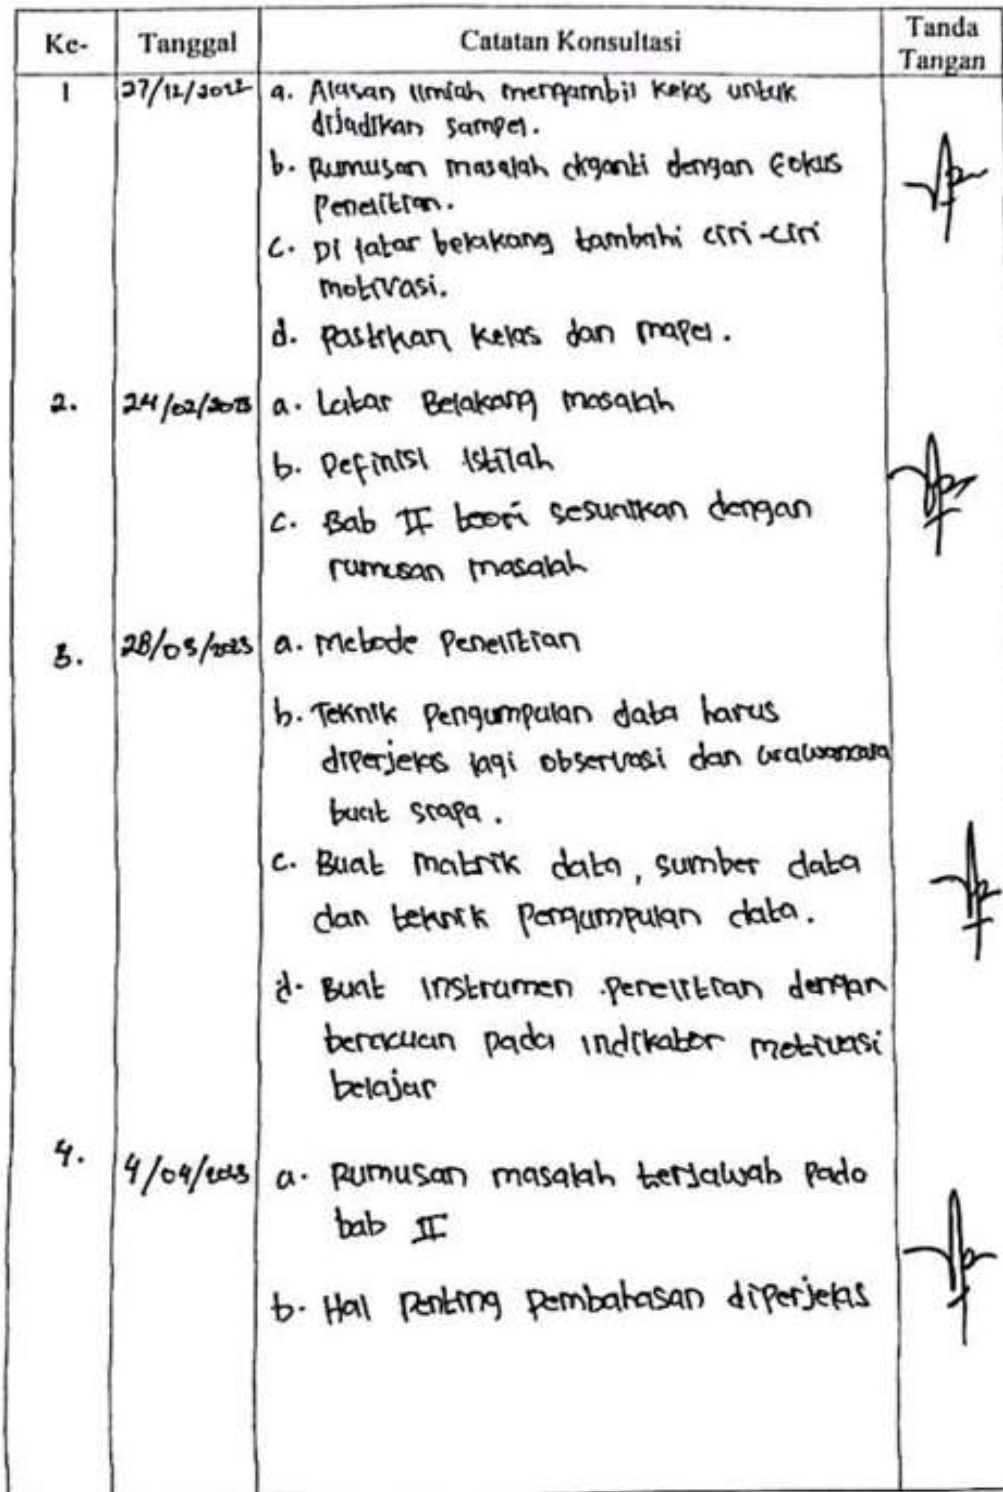 Ke- Tanggal Catatan Konsultasi Tanda Tangan
1 27/12/2022 a. Alasan ilmiah mengambil kelas untuk
dijadikan sampel.
b. Rumusan masalah diganti dengan Fokus
Penelitian.
c. Di latar belakang tambahi ciri-ciri
motivasi.
d. Pastikan kelas dan mapel.
2. 24/02/2023 a. Latar Belakang masalah
b. Definisi Istilah
c. Bab II teori sesuaikan dengan
rumusan masalah
3. 28/03/2023 a. Metode Penelitian
b. Teknik Pengumpulan data harus
diperjelas lagi observasi dan wawancara
buat siapa.
c. Buat matrik data, sumber data
dan teknik Pengumpulan data.
d. Buat instrumen penelitian dengan
beracuan pada indikator motivasi
belajar
4. 4/04/2023 a. Rumusan masalah terjawab Pada
bab II
b. Hal Penting Pembahasan diperjelas